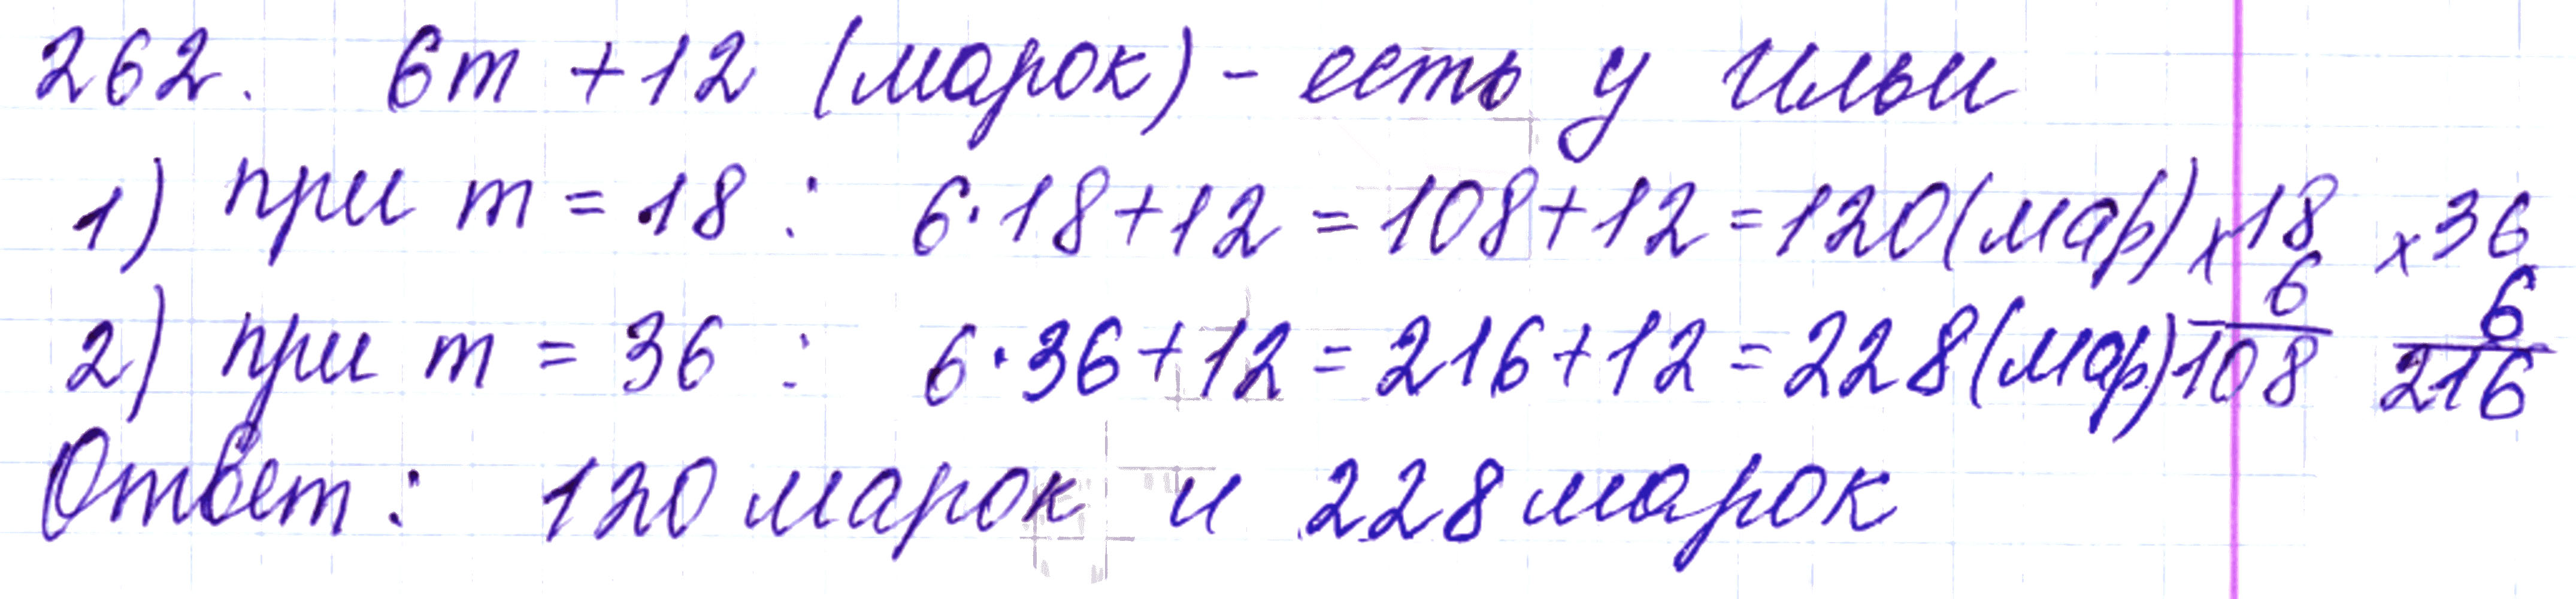 262. 6m + 12 (марок) - есть у Ильи
1) при m = 18 : 6·18+12 = 108+12 = 120 (мар) ×18 ×36
6 6
2) при m = 36 : 6·36+12 = 216+12 = 228 (мар) 108 216
Ответ: 120 марок и 228 марок